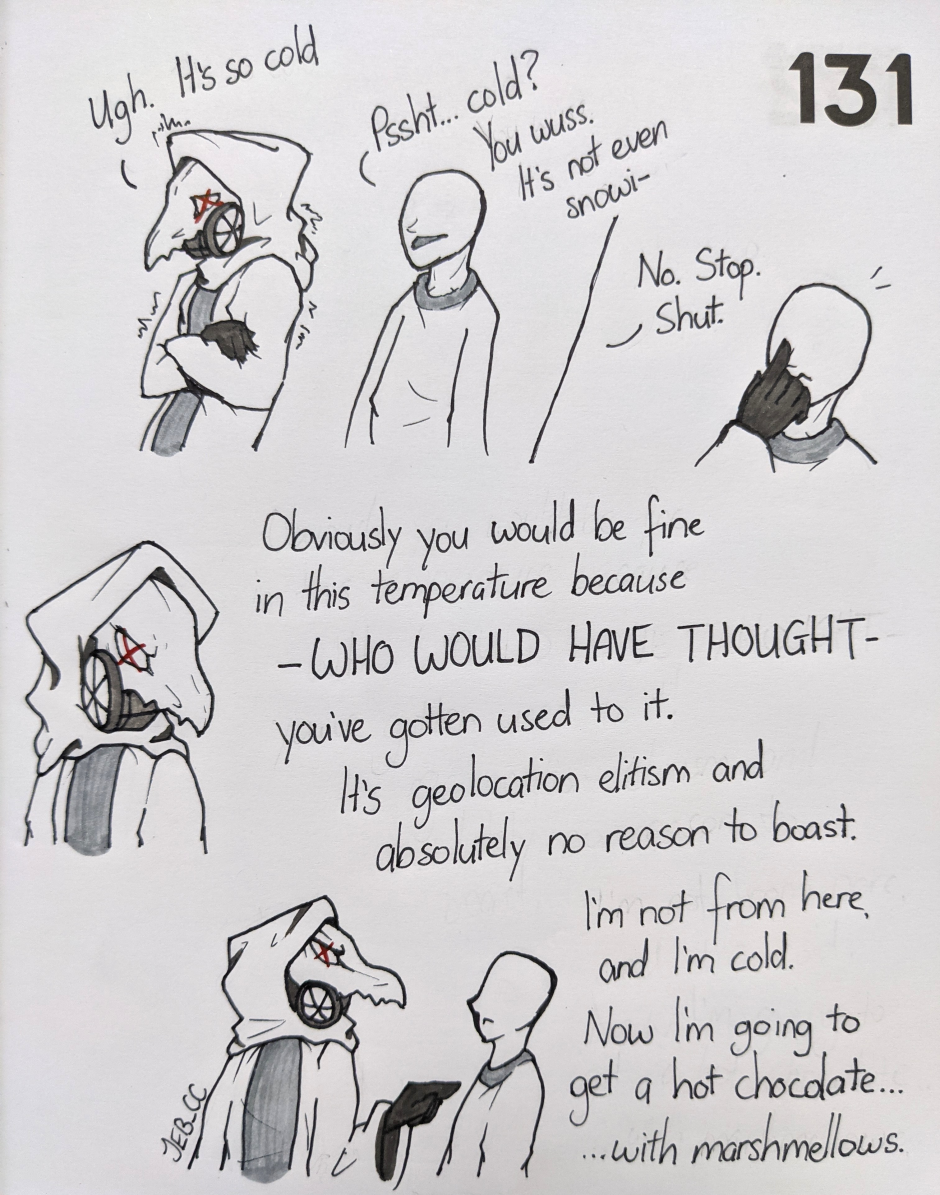 131
Ugh. It's so cold
Pssht... cold?
You wuss.
It's not even
snowi-
No. Stop.
Shut.
Obviously you would be fine
in this temperature because
-WHO WOULD HAVE THOUGHT-
you've gotten used to it.
It's geolocation elitism and
absolutely no reason to boast.
I'm not from here,
and I'm cold.
Now I'm going to
get a hot chocolate...
...with marshmellows.
JEB_CC